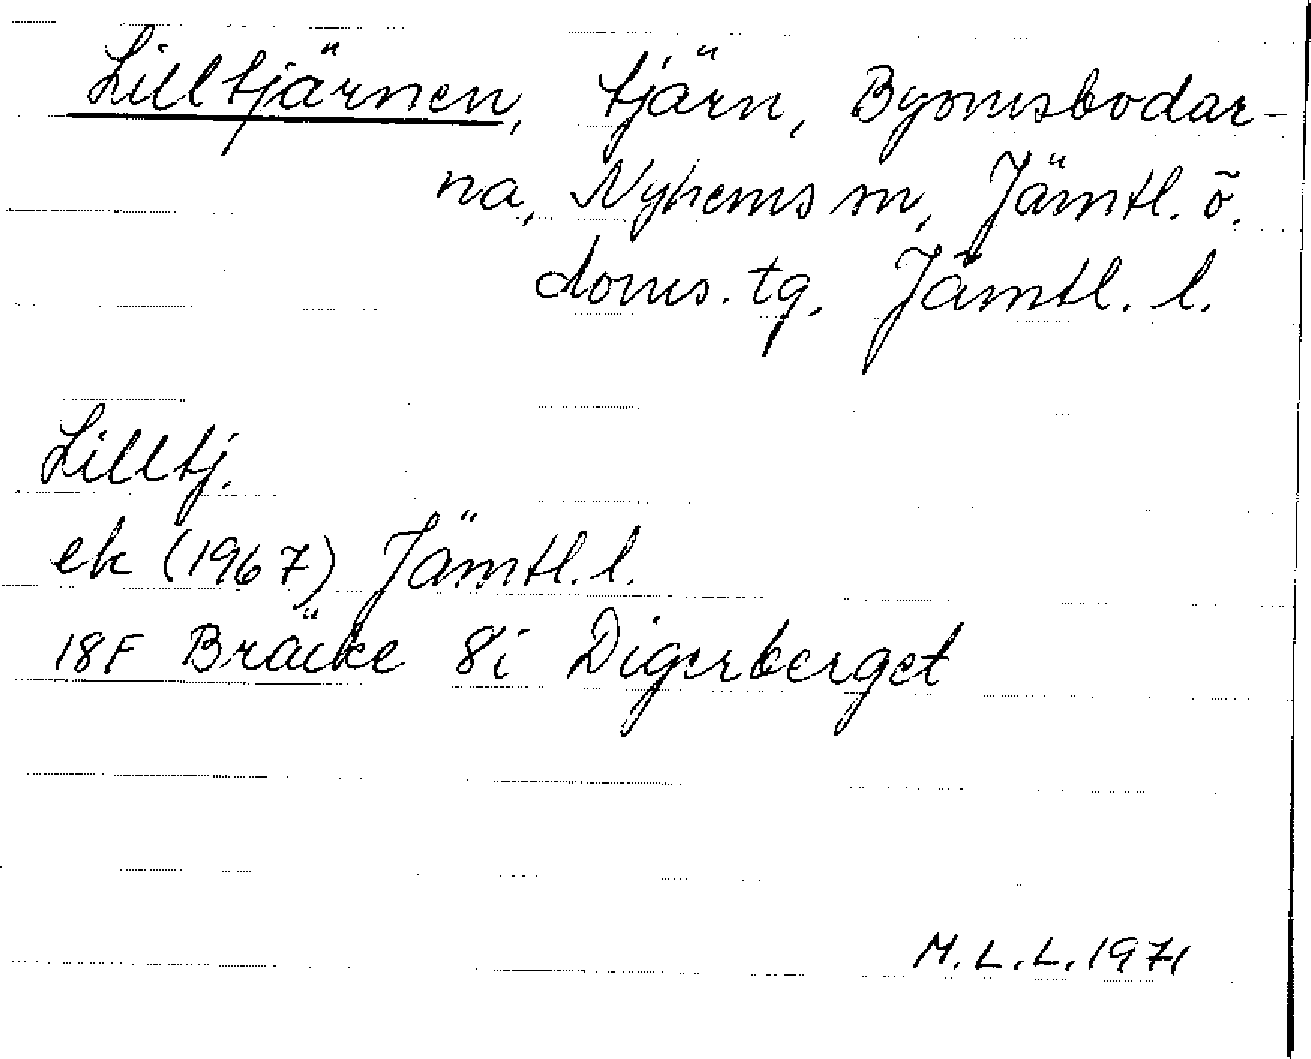 Lilltjärnen, tjärn, Byomsbodar-
na, Nyhems sn, Jämtl. ö.
doms. tg. Jämtl. l.
Lilltj.
ek (1967) Jämtl. l.
18F Bräcke 8i Digerberget
M.L.L. 1971